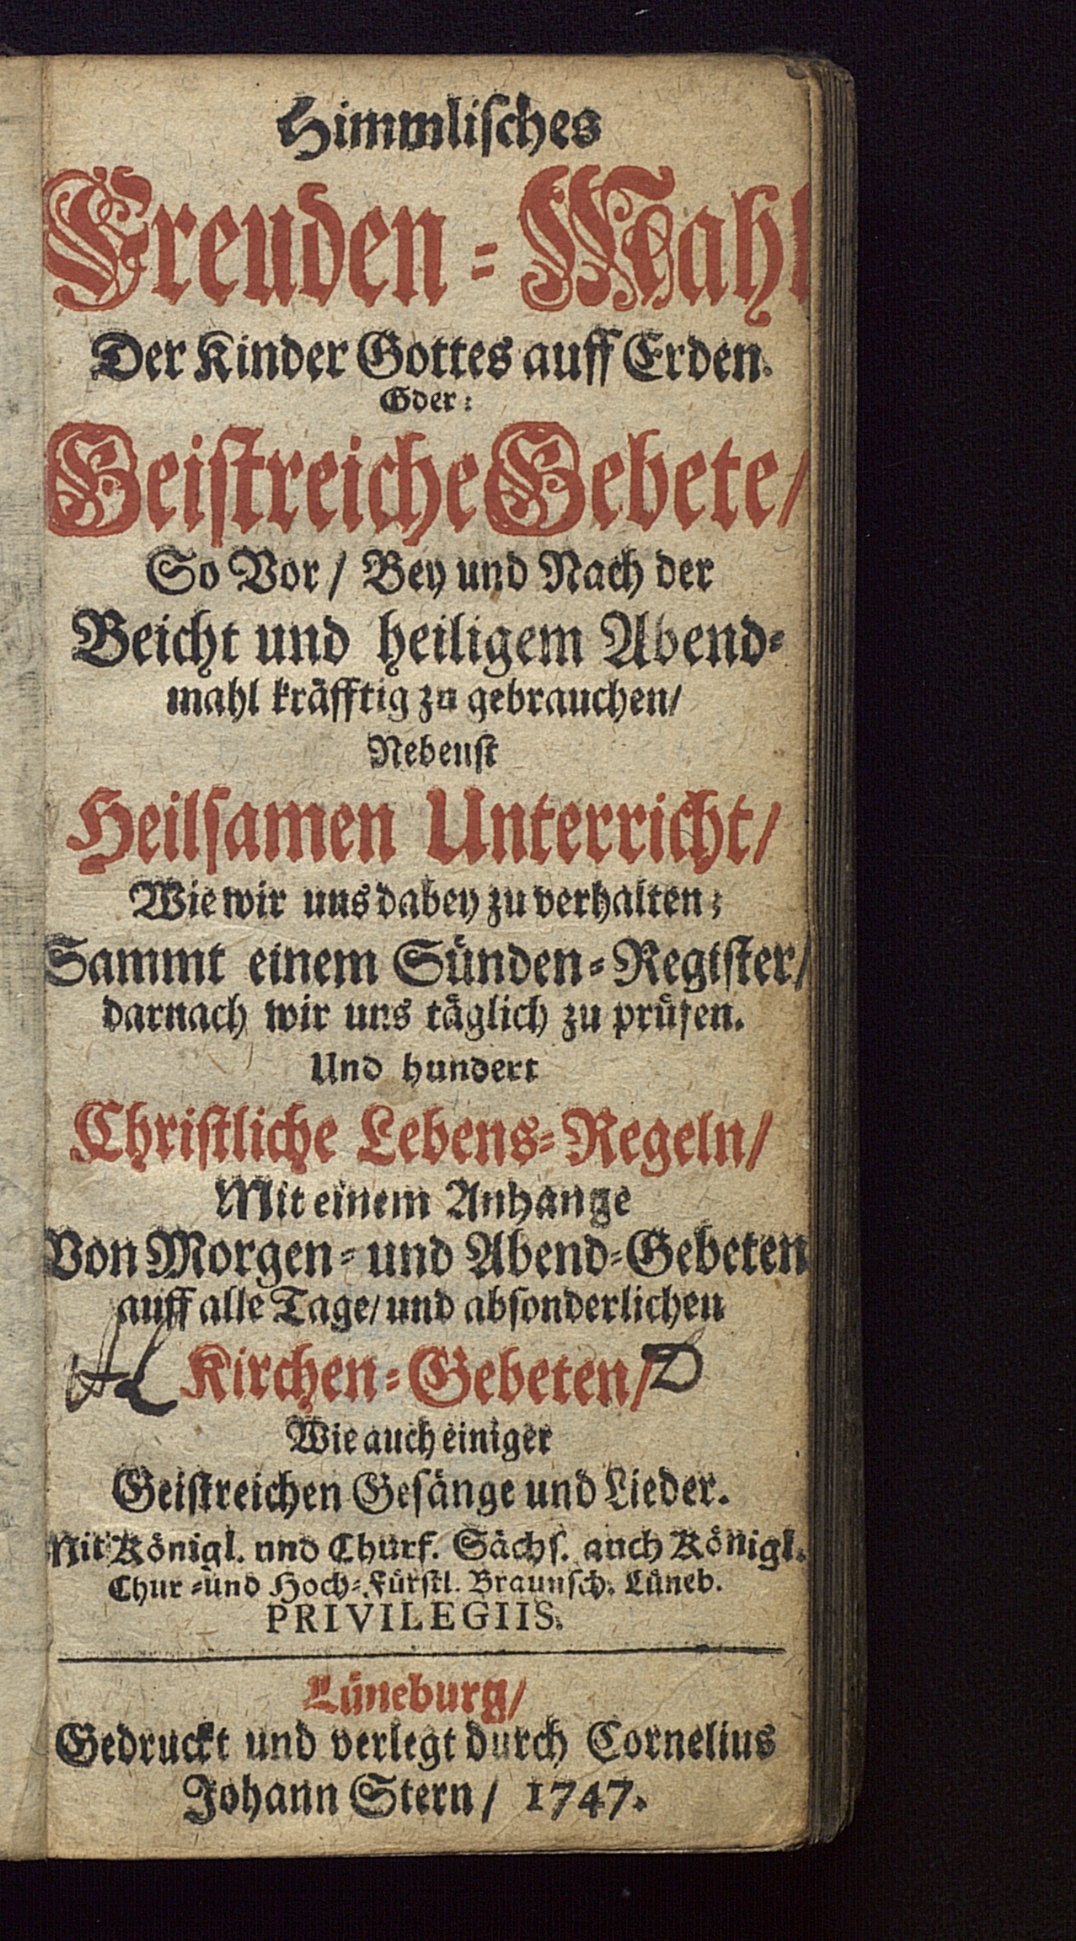 Himmlisches
Freuden-Mahl
Der Kinder Gottes auff Erden.
Oder:
Geistreiche Gebete/
So Vor/ Bey und Nach der
Beicht und heiligem Abend-
mahl kräfftig zu gebrauchen/
Nebenst
Heilsamen Unterricht/
Wie wir uns dabey zu verhalten;
Sammt einem Sünden-Register/
darnach wir uns täglich zu prüfen.
Und hundert
Christliche Lebens-Regeln/
Mit einem Anhange
Von Morgen- und Abend-Gebeten
auff alle Tage/ und absonderlichen
Kirchen-Gebeten/ D
Wie auch einiger
Geistreichen Gesänge und Lieder.
Mit Königl. und Churf. Sächs. auch Königl.
Chur- und Hoch-Fürstl. Braunsch. Lüneb.
PRIVILEGIIS.
Lüneburg/
Gedruckt und verlegt durch Cornelius
Johann Stern/ 1747.